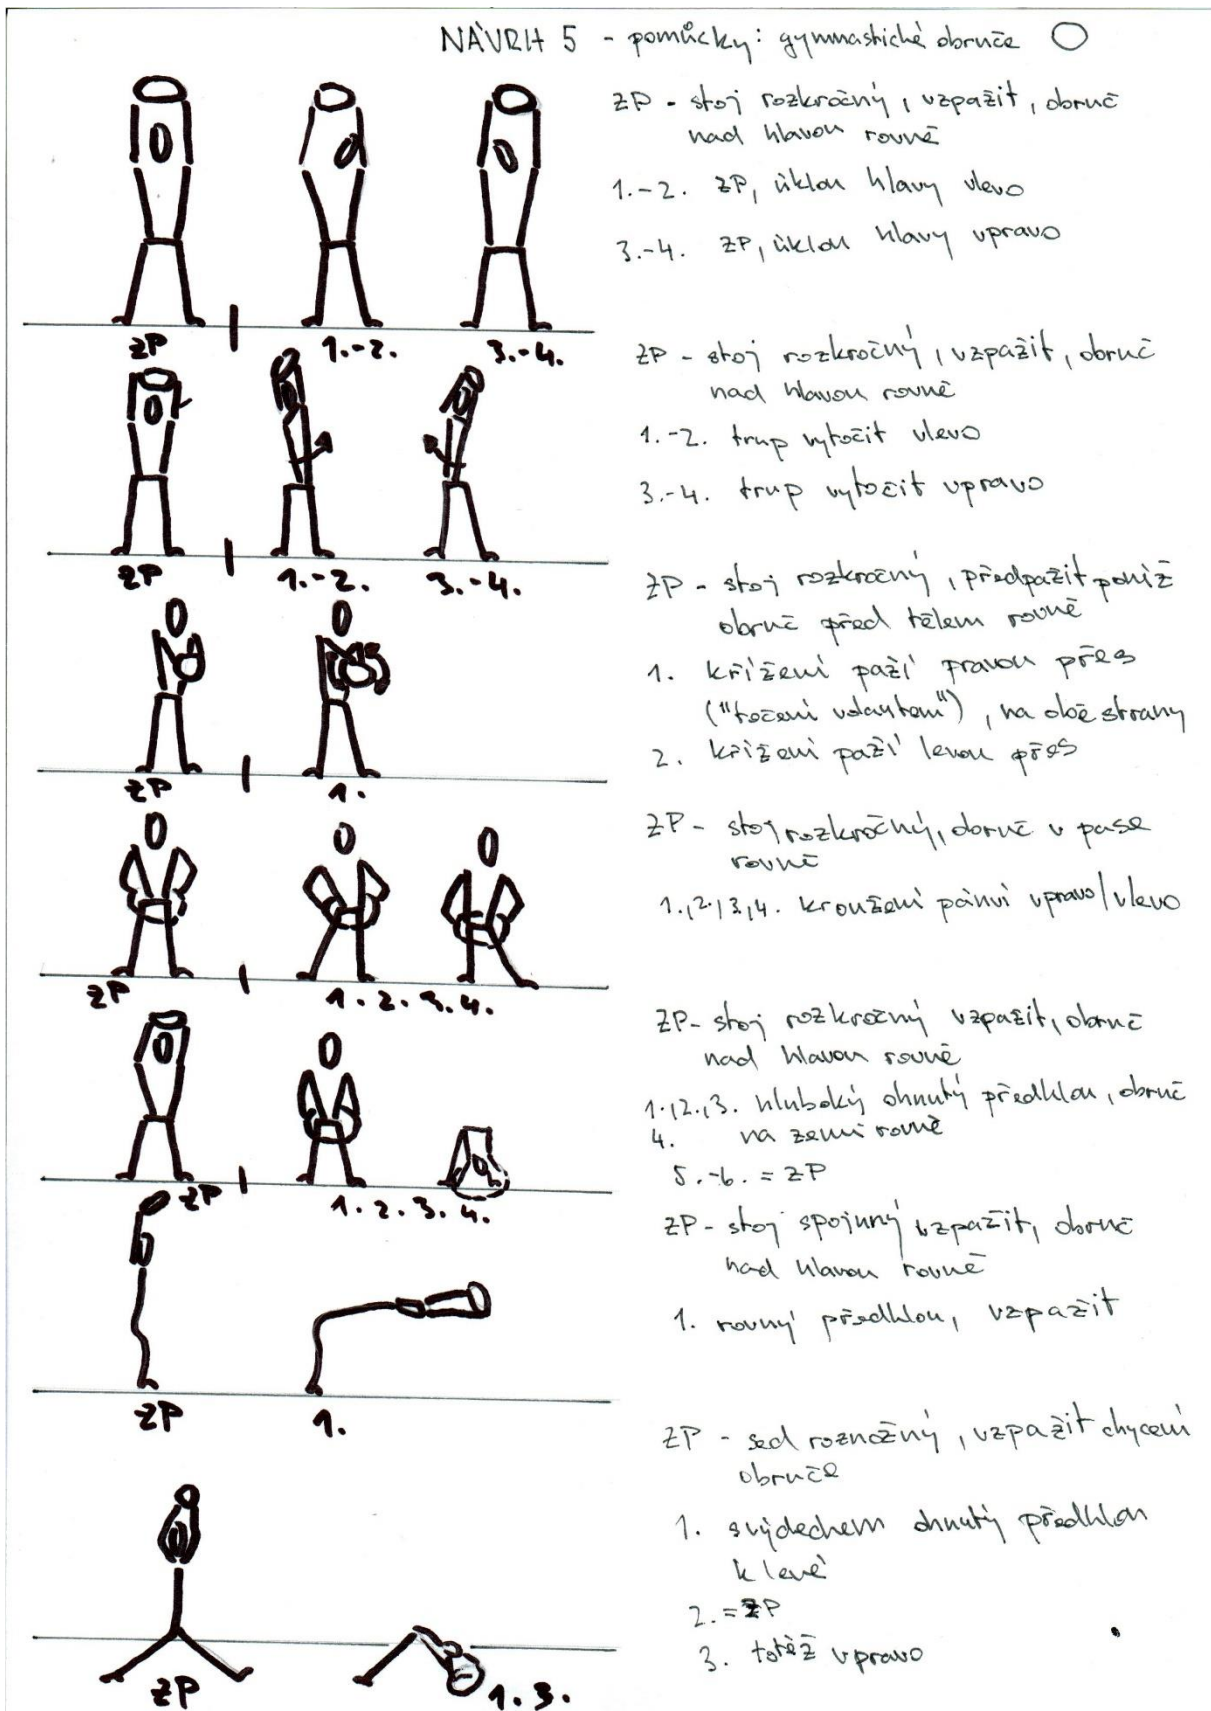 NÁVRH 5 - pomůcky: gymnastické obruče
ZP - stoj rozkročný, vzpažit, obruč
nad hlavou rovně
1.-2. ZP, úklon hlavy vlevo
3.-4. ZP, úklon hlavy vpravo
ZP | 1.-2. 3.-4.
ZP - stoj rozkročný, vzpažit, obruč
nad hlavou rovně
1.-2. trup vytočit vlevo
3.-4. trup vytočit vpravo
ZP | 1.-2. 3.-4.
ZP - stoj rozkročný, předpažit poníž
obruč před tělem rovně
1. křížení paží pravou přes
("točení volantem"), na obě strany
2. křížení paží levou přes
ZP | 1.
ZP - stoj rozkročný, obruč v pase
rovně
1.,2.,3.,4. kroužení pánví vpravo/vlevo
ZP | 1. 2. 3. 4.
ZP - stoj rozkročný vzpažit, obruč
nad hlavou rovně
1.,2.,3. hluboký ohnutý předklon, obruč
4. na zemi rovně
5.-6. = ZP
ZP | 1. 2. 3. 4.
ZP - stoj spojný vzpažit, obruč
nad hlavou rovně
1. rovný předklon, vzpažit
ZP 1.
ZP - sed roznožný, vzpažit chycení
obruče
1. s výdechem ohnutý předklon
k levé
2. = ZP
3. totéž vpravo
ZP 1. 3.